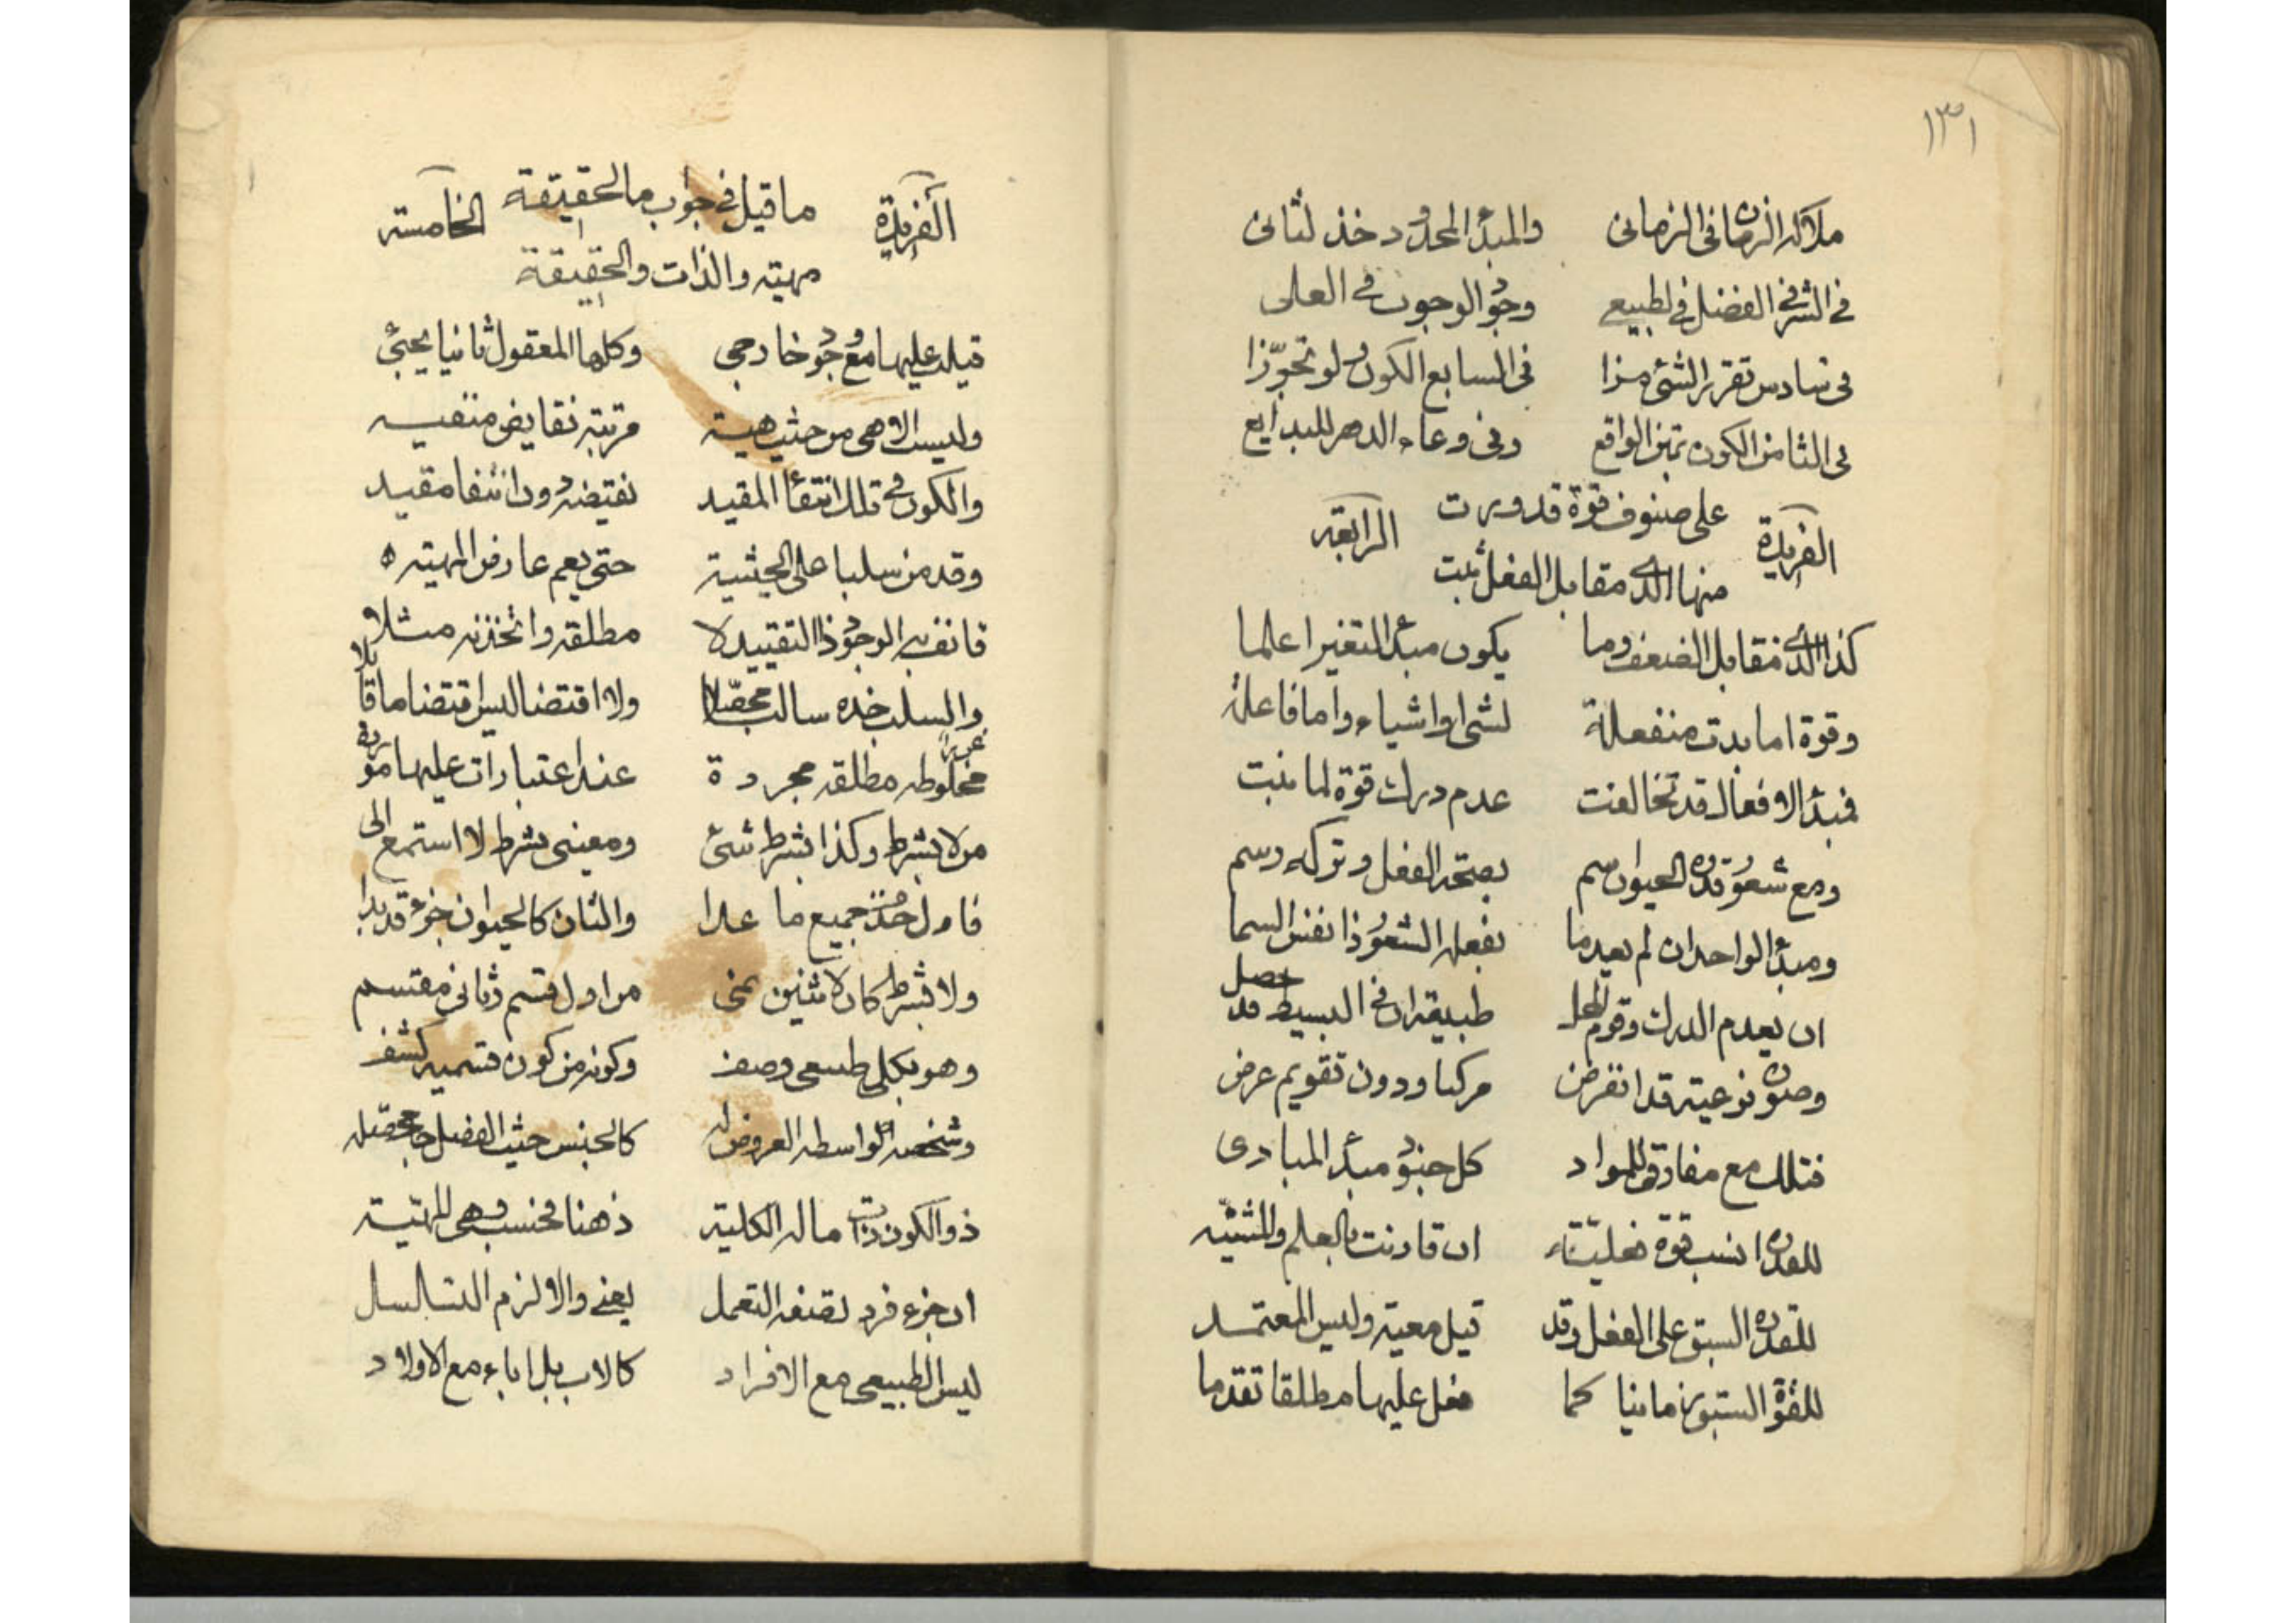 ١٣١
ملاكه الزمان فی الزمانی والمبدأ المحدود خذ لثانی
فی الشرفی الفضل فی الطبیعی وجود الوجوب فی العلی
فی سادس تقرر الشئ مزا فی السابع الكون ولو تجوّزا
فی الثامن الكون بمتن الواقع وفی وعاء الدهر للبدایع
الفریدة علی صنوف قوة قد وردت الرابعة
منها الذی مقابل الفعل ثبت
كذا الذی مقابل الضعف وما یكون مبدأ التغیر اعلما
وقوة اما بدت منفعلة لشی او اشیاء واما فاعلة
فمبدأ الافعال قد تخالفت عدم درك قوة لما نبت
ومع شعور قدرة الحیوان سم بصحة الفعل وتركه رسم
ومبدأ الواحد ان لم یعدما بفعله الشعور ذا نفس السما
ان یعدم الدرك وقوم المحل طبیعة ان فی البسیط قد حصل
وصورة نوعیة قد انفرض مركبا ودون تقویم عرض
فتلك مع مفارق المواد كل جنود مبدأ المبادی
للقدرة انسب قوة فعلیة ان قارنت بالعلم والمشیّه
للقدرة السبق علی الفعل وقد قیل معیة ولیس المعتمد
للقوة السبق زمانیا كما فعل علیها مطلقا تقدما
الفریدة ما قیل فی جواب ما الحقیقة الخامسة
مهیته والذات والحقیقة
قیلت علیها مع وجود خارجی وكلها المعقول ثانیا یجئ
ولیست الا هی من حیث هیه مرتبة نقایض منتفیه
والكون فی تلك انتفأ المقید نقیضه دون انتفا مقید
وقدمن سلبا علی الحیثیة حتی یعم عارض المهیته
فانف به الوجود ذا التقیید لا مطلقه واتخذنه مثلا
والسلب خذه سالبا محصّلا ولا اقتضا لیس اقتضا ما قابلا
مخلوطه مطلقه مجردة عند اعتبارات علیها موردة
من لا بشرط وكذا بشرط شئ ومعنی بشرط لا استمع الی
فاول حذف جمیع ما عدا والثان كالحیوان جزء قد بدا
ولا بشرط كان لاثنین نمی من اول قسم وثانی مقسم
وهو بكلی طبیعی وصف وكونه من كون قسمیه كشف
وشخصه الواسطه العروض له كالجنس حیث الفصل جا محصّله
ذو الكون ذات ما له الكلیة ذهنا فحسب وهی للمهیة
ان جزء فرد تصفه التعمل یعنی والا لزم التسلسل
لیس الطبیعی مع الافراد كالاب بل اباء مع الاولاد